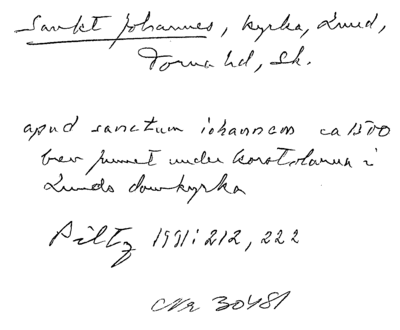 Sankt Johannes, kyrka, Lund,
Torna hd, Sk.
apud sanctum iohannem ca 1500
brev funnet under korstolarna i
Lunds domkyrka
Piltz 1991: 212, 222
Nr 30481